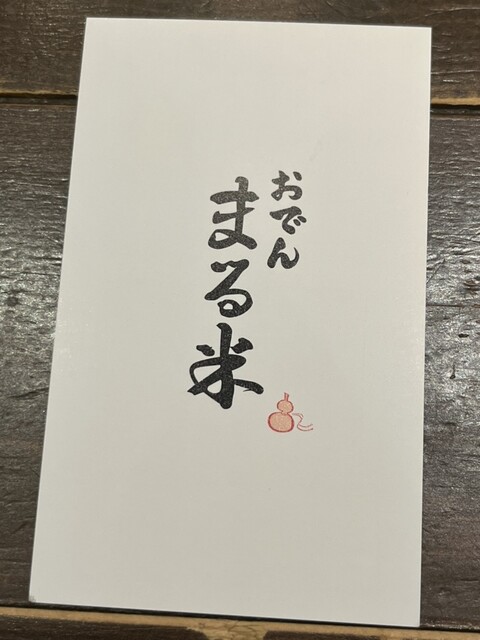 おでん
まる米